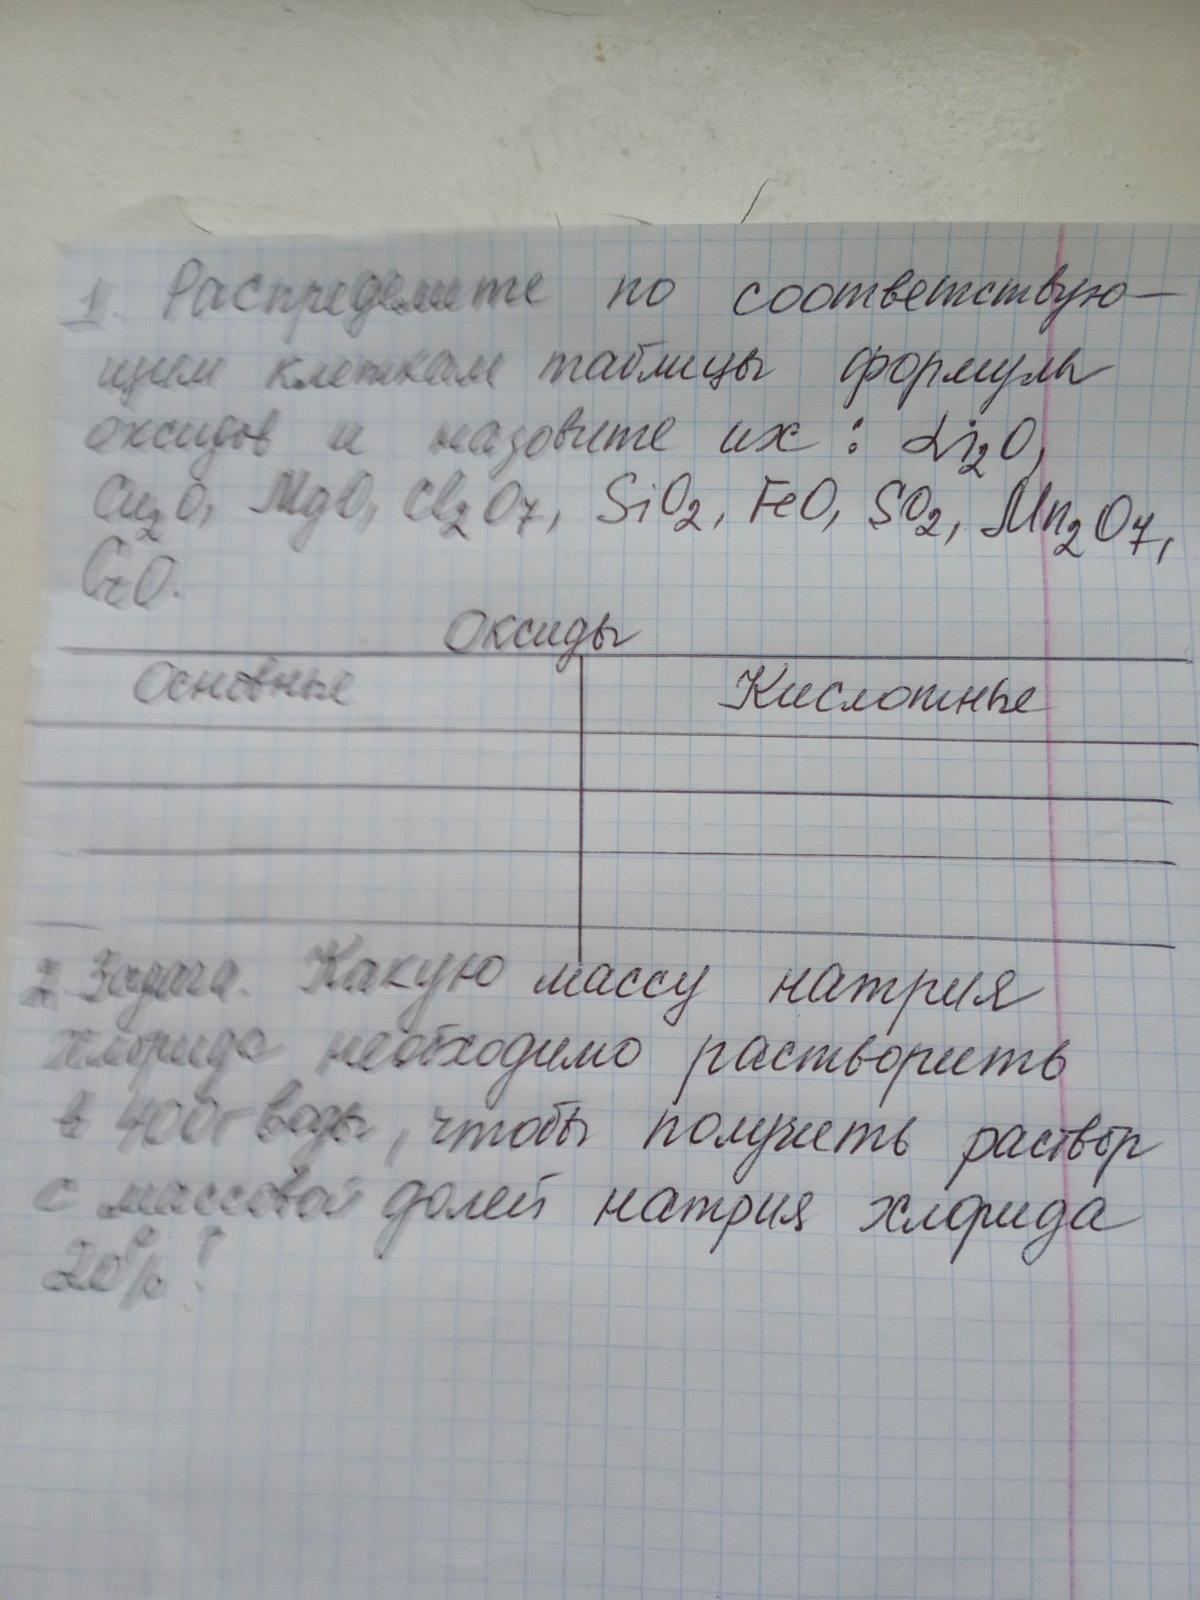 1. Распределите по соответствую-
щим клеткам таблицы формулы
оксидов и назовите их: Li₂O,
Cu₂O, MgO, Cl₂O₇, SiO₂, FeO, SO₂, Mn₂O₇,
CrO.
Оксиды
Основные Кислотные
2. Задача. Какую массу натрия
хлорида необходимо растворить
в 400г воды, чтобы получить раствор
с массовой долей натрия хлорида
20%?